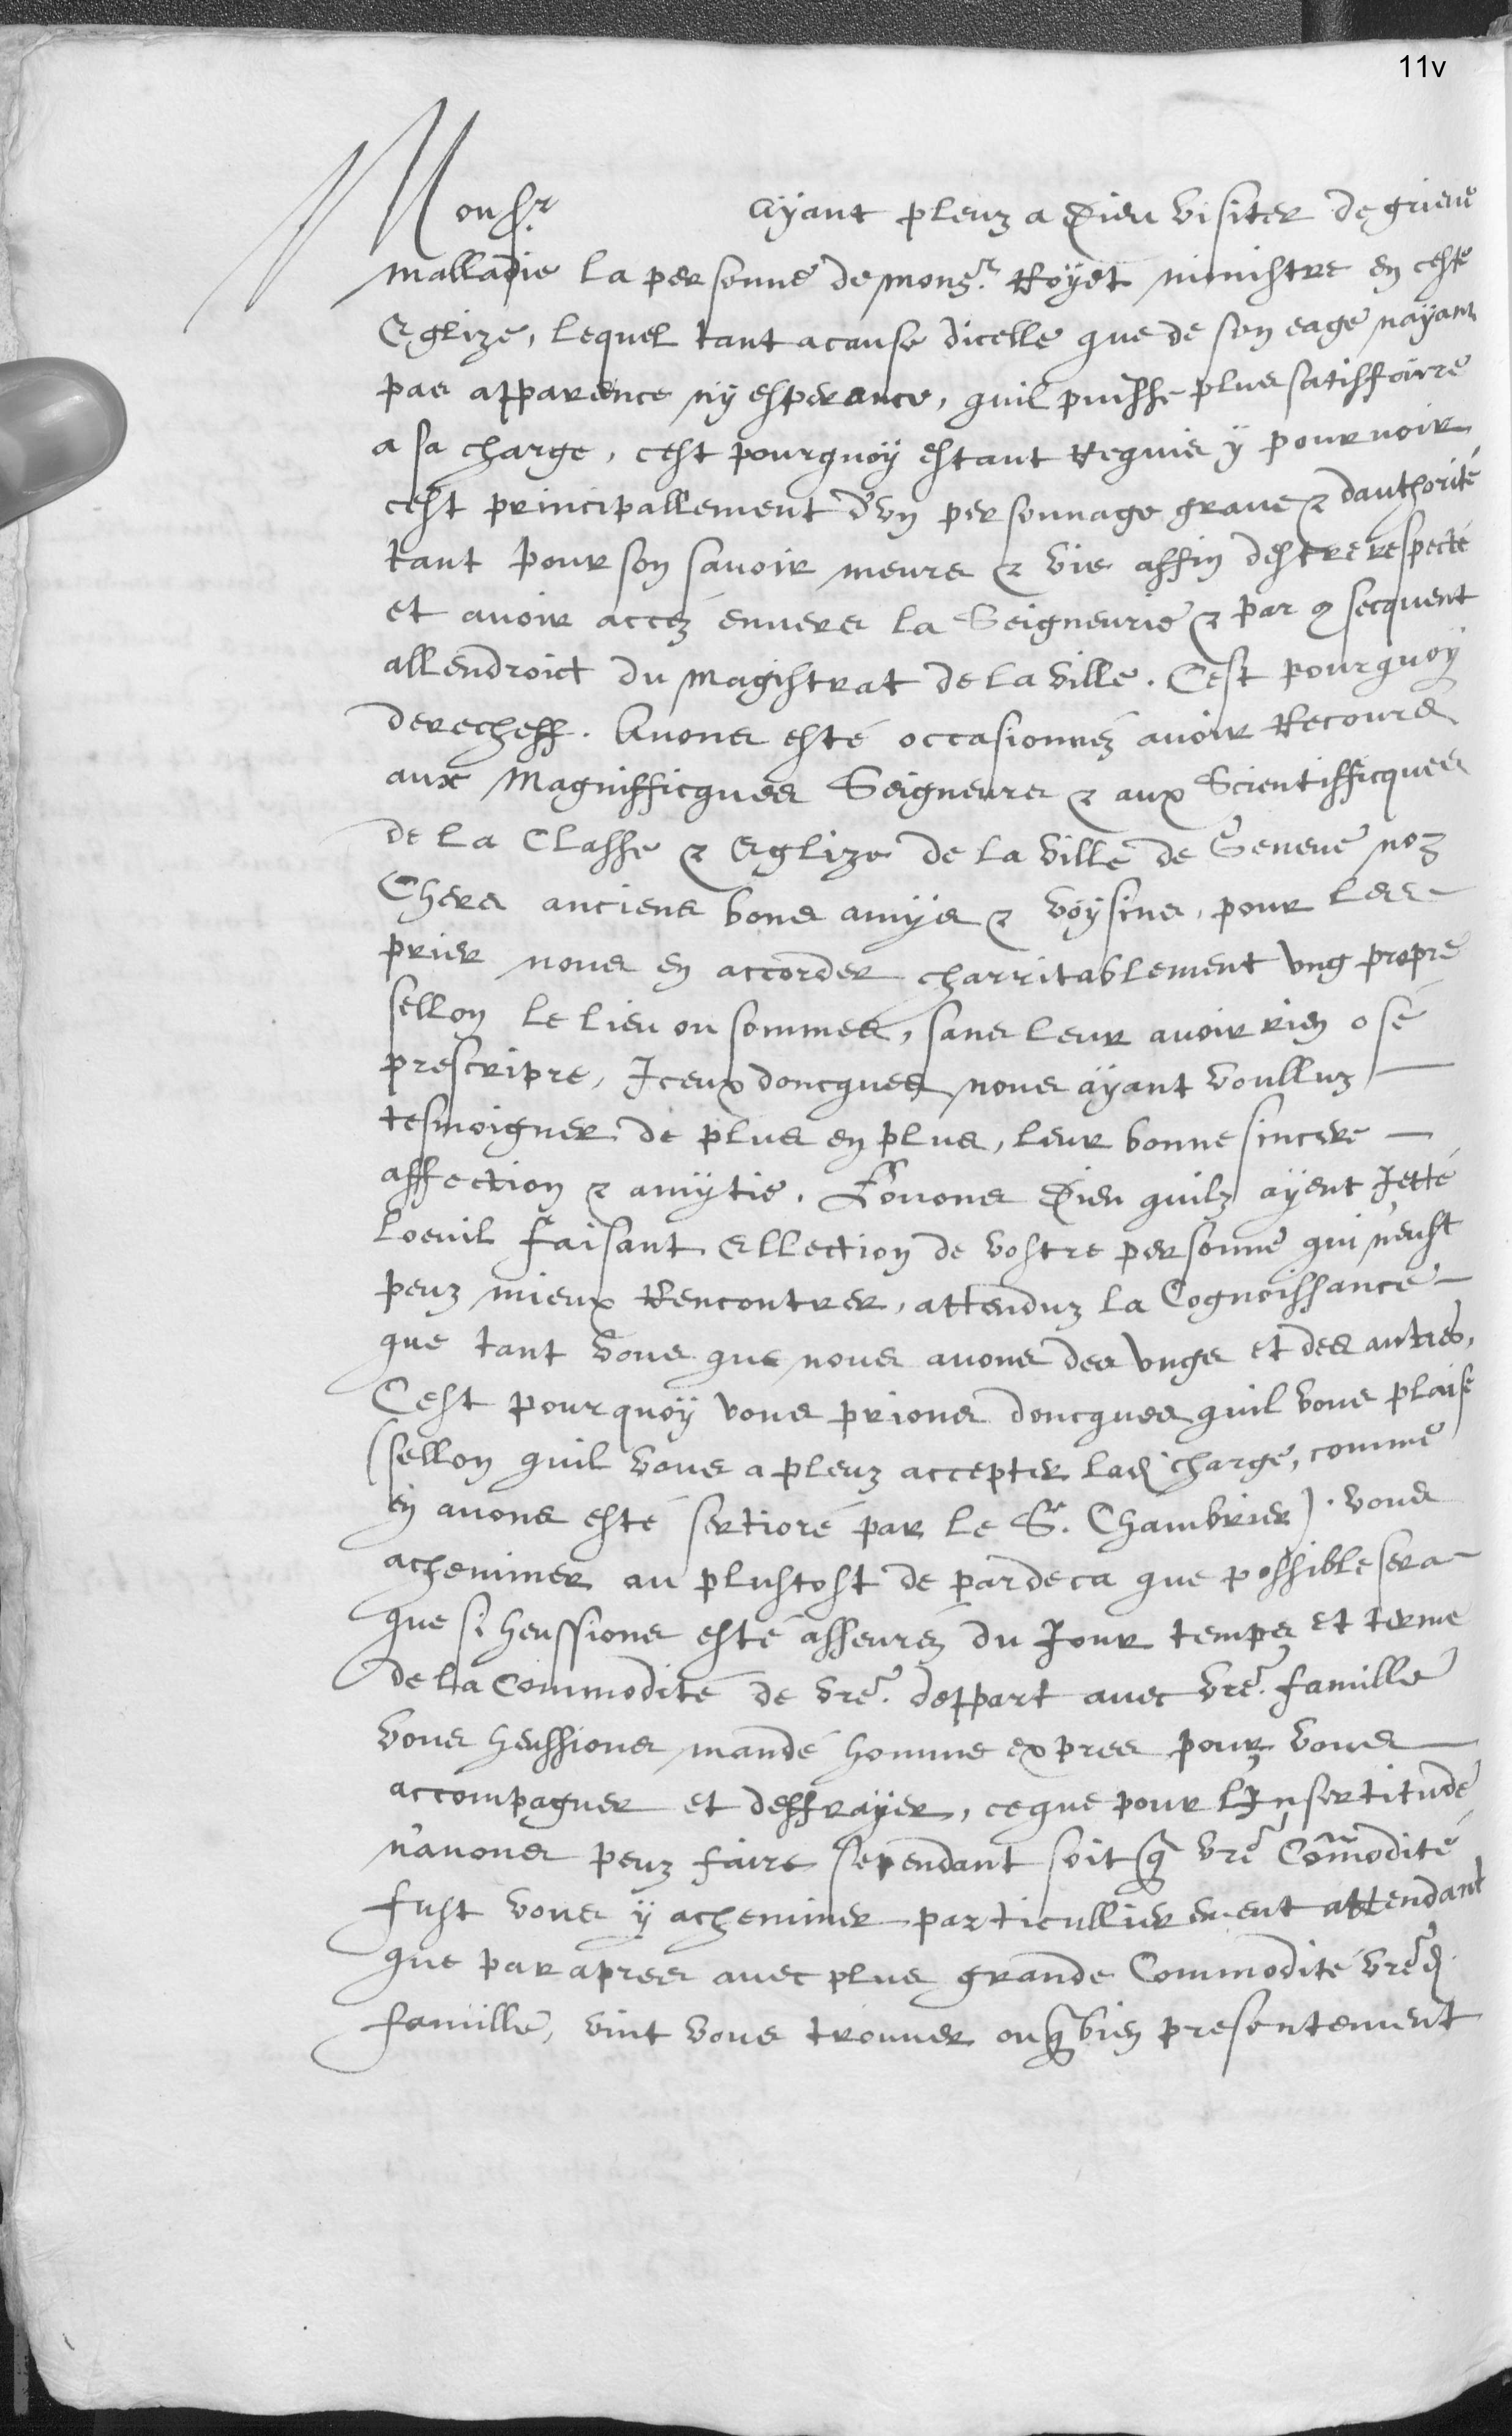 11v
Monsr. Ayant pleuz a Dieu visiter de grieue
malladie la personne de Monsr. Royet ministre en ceste
Eglize, lequel tant a cause dicelle que de son eage nayant
pas apparence ny esperance, quil puisse plus satisffaire
a sa charge, cest pourquoy estant Requis y pouruoir
cest principallement d'un personnage graue & dauthorité
tant pour son sauoir meurs & vie affin destre respecté
et auoir accéz enuers la Seigneurie & par consecquent
allendroict du Magistrat de la ville. Cest pourquoy
derecheff. Auons esté occasionnéz auoir Recours
aux Magnifficques Seigneurs & aux Scientifficques
de la Classe & Eglize de la ville de Geneue noz
Chers anciens bons amys & voysins, pour les
prier nous en accorder charritablement ung propre
sellon le lieu ou sommes, sans leur auoir rien osé
prescripre, Iceux doncques nous ayant voulluz
tesmoigner de plus en plus, leur bonne sincere
affection & amytie. Louons Dieu quilz ayent Jetté
loeuil faisant Ellection de vostre personne qui n'eust
peuz mieux Rencontrer, attenduz la Cognoissance
que tant vous que nous auons des ungs et des autres,
Cest pourquoy vous prions doncques quil vous plaise
(sellon quil vous a pleuz accepter lad charge, comme
en auons esté sertioré par le Sr. Chambrier). vous
acheminer au plustost de par deca que possible sera
que si heussions esté asseuréz du Jour temps et terme
de la Commodité de vre. deppart auec vre. famille
vous heussions mandé homme expres pour vous
accompagner et deffrayer, ce que pour lInsertitude
n'auons peuz faire sependant soit q vre Comodité
fust vous y acheminer particullierement attendant
que par apres auec plus grande Commodité vred.
famille, vint vous trouuer ou q bien presentement